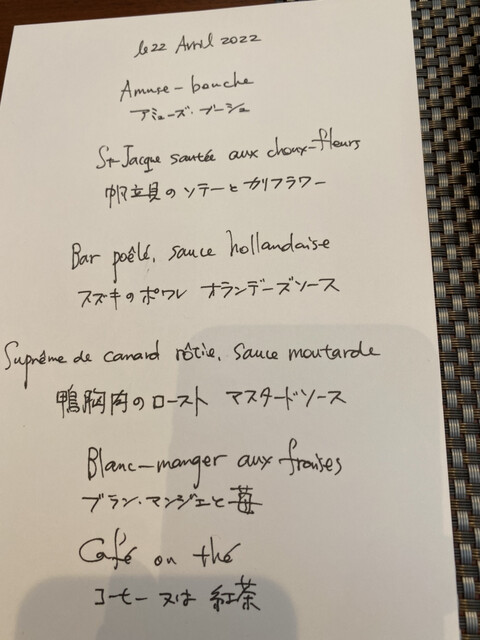 le 22 Avril 2022
Amuse-bouche
アミューズ・ブーシュ
St-Jacque sautée aux choux-fleurs
帆立貝のソテーとカリフラワー
Bar poêlé, sauce hollandaise
スズキのポワレ オランデーズソース
Suprême de canard rôtie, sauce moutarde
鴨胸肉のロースト マスタードソース
Blanc-manger aux fraises
ブラン・マンジェと苺
Café ou thé
コーヒー又は紅茶